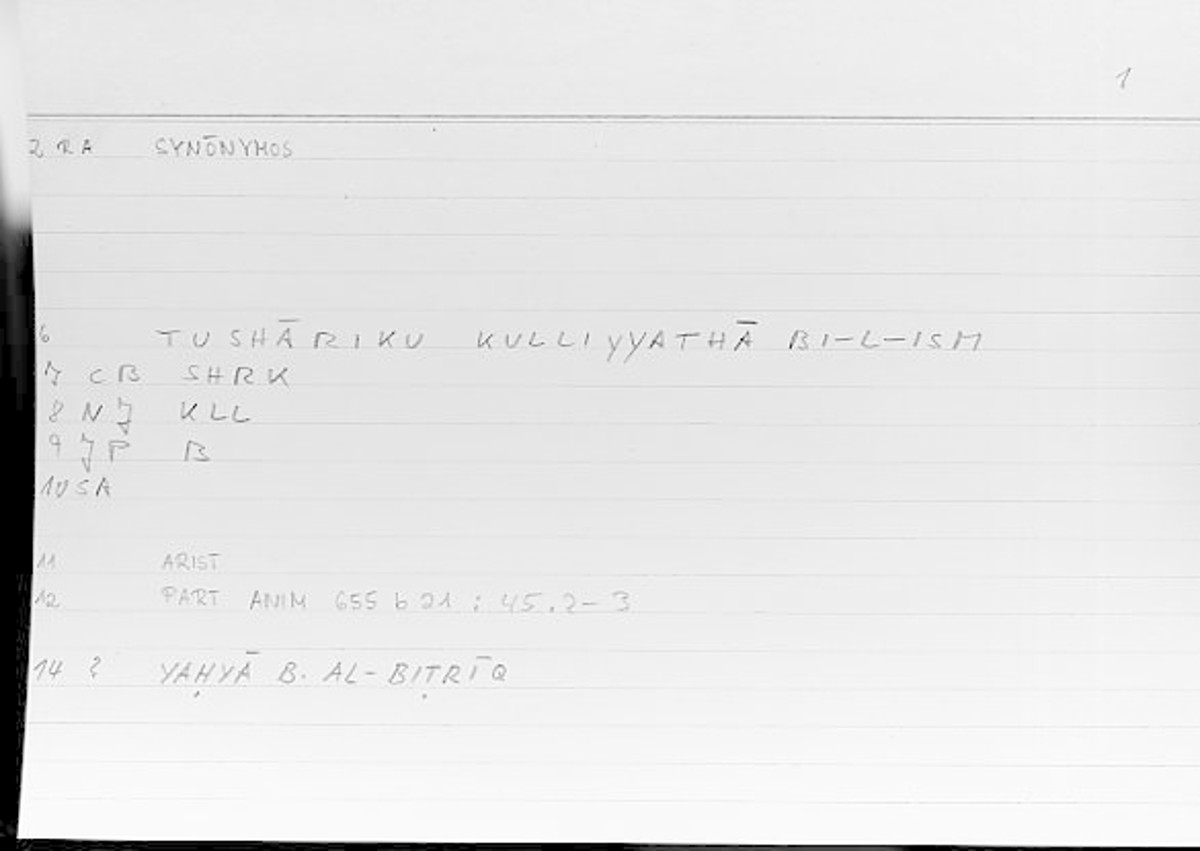 1
2 RA SYNŌNYMOS
6 TUSHĀRIKU KULLIYYATHĀ BI-L-ISM
7 CB SHRK
8 NJ KLL
9 JP B
10 SA
11 ARIST
12 PART ANIM 655 b 21 : 45.2-3
14 ? YAḤYĀ B. AL-BIṬRĪQ